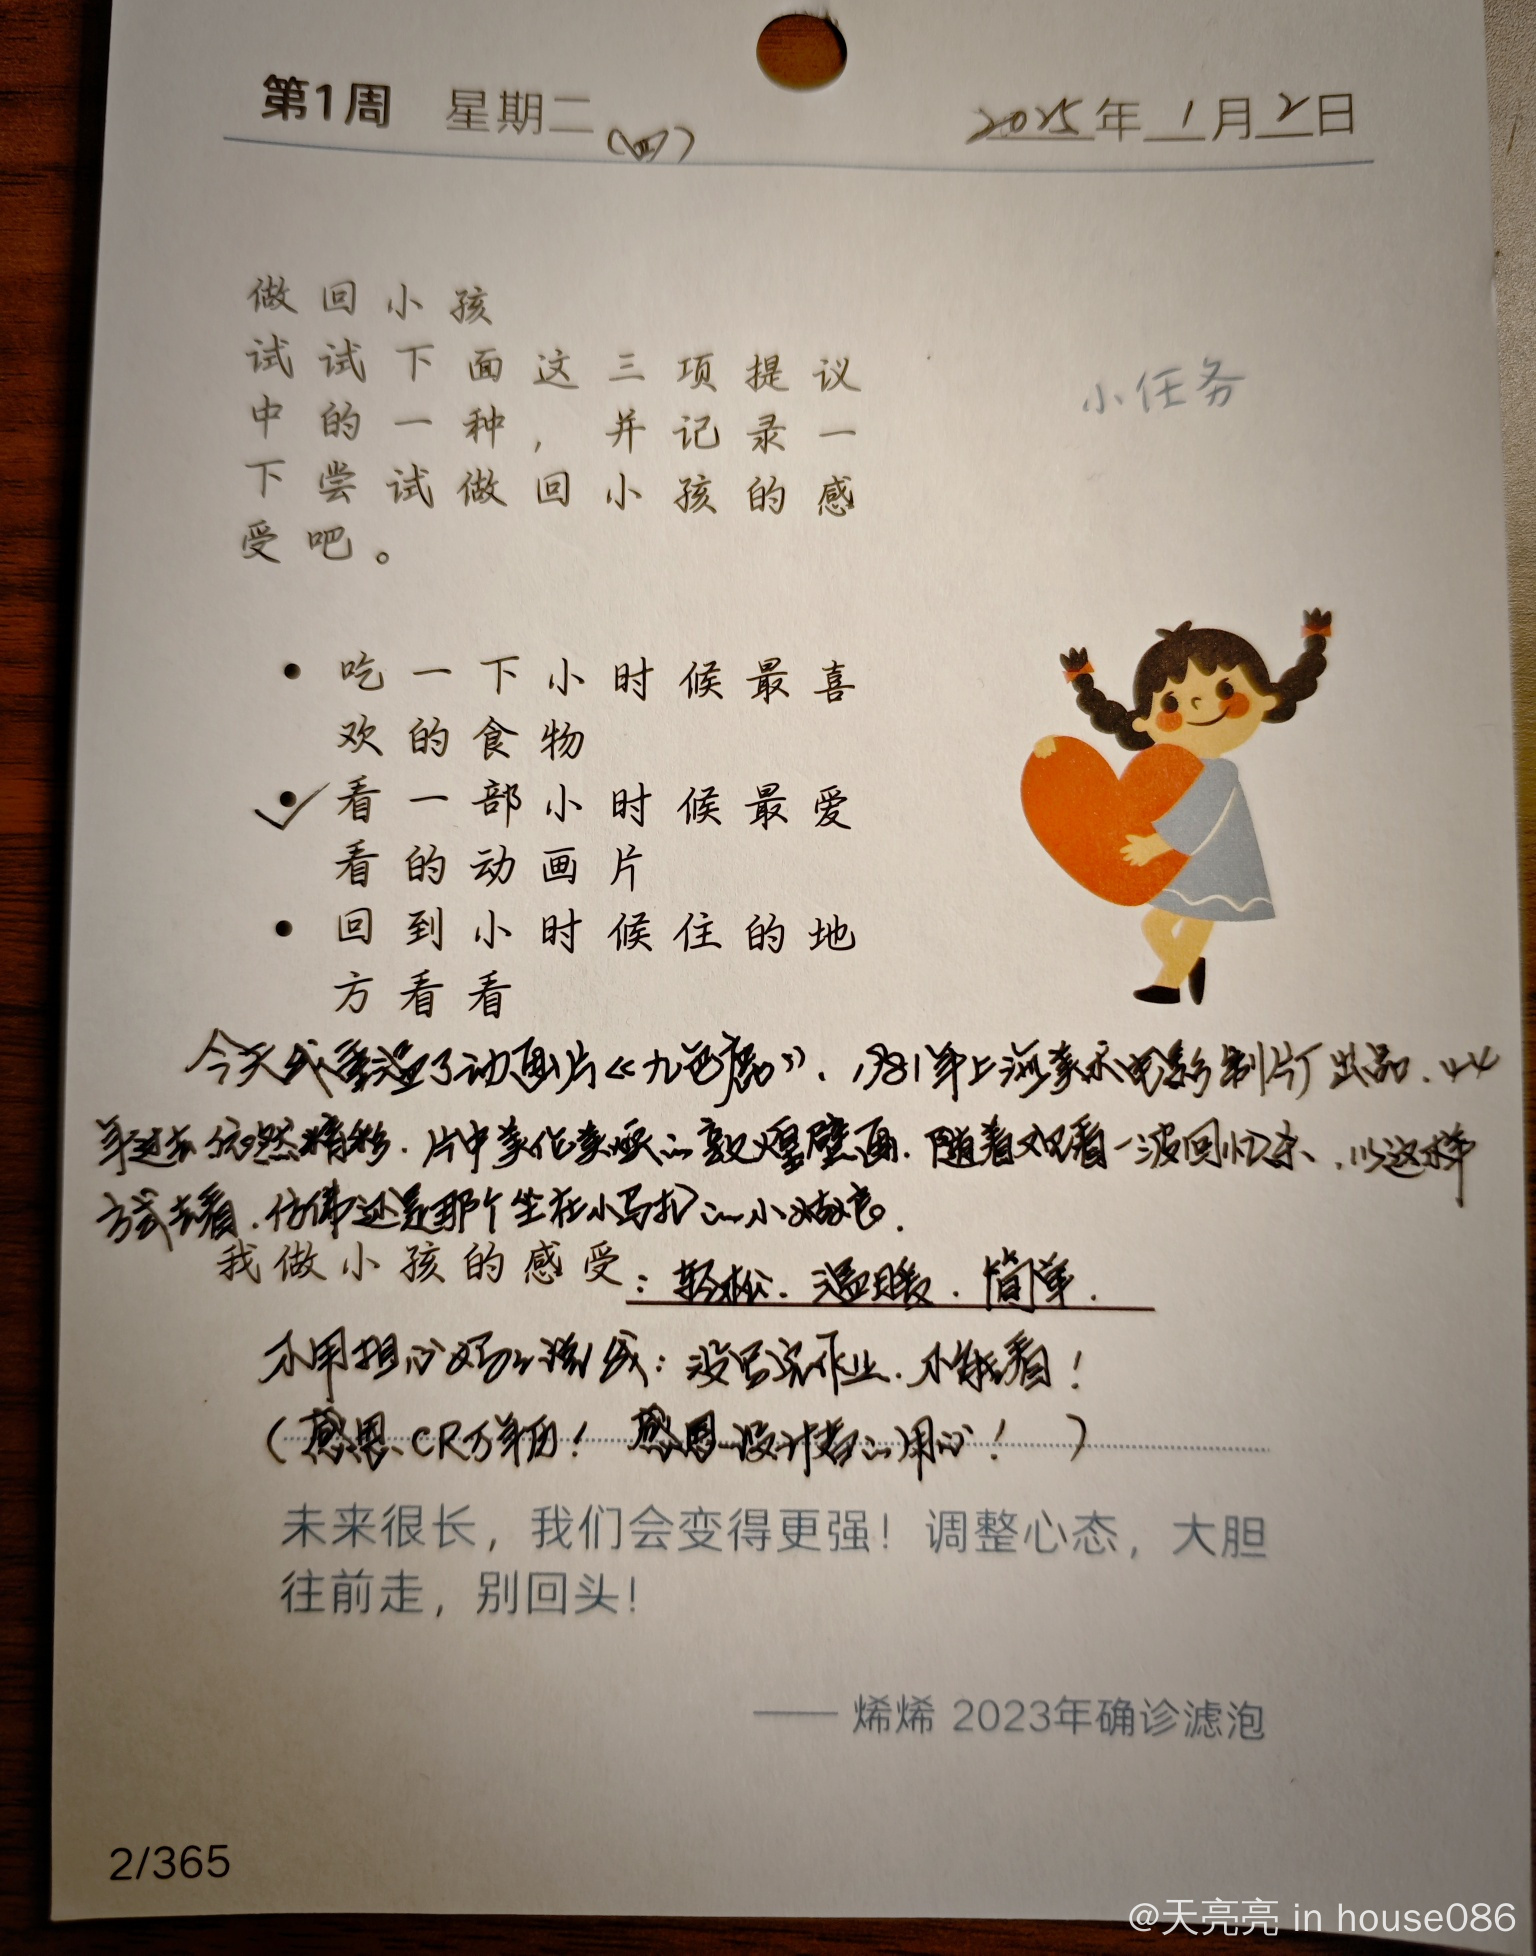 第1周 星期二(四) 2025年1月2日
做回小孩
试试下面这三项提议
中的一种，并记录一
下尝试做回小孩的感
受吧。
小任务
• 吃一下小时候最喜
欢的食物
• 看一部小时候最爱
看的动画片
• 回到小时候住的地
方看看
今天我重温了动画片《九色鹿》. 1981年上海美术电影制片厂出品. 44
年过去依然精彩. 片中美化美的敦煌壁画. 随着观看一波回忆杀. 以这样
方式去看. 仿佛还是那个坐在小马扎的小姑娘.
我做小孩的感受: 轻松. 温暖. 简单.
不用担心妈妈说我: 没写完作业. 不能看!
(感恩 CR万年历! 感恩设计者的用心! )
未来很长，我们会变得更强！调整心态，大胆
往前走，别回头！
—— 烯烯 2023年确诊滤泡
2/365
@天亮亮 in house086